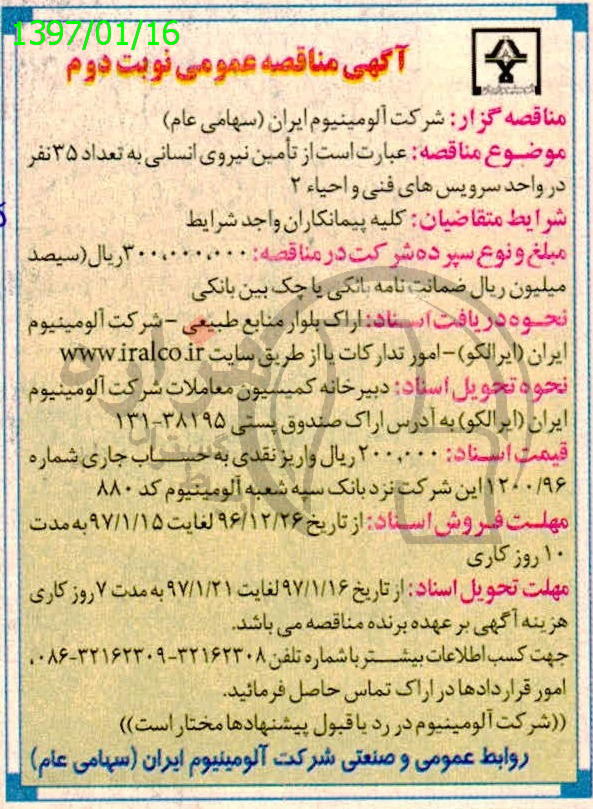 1397/01/16
آگهی مناقصه عمومی نوبت دوم
مناقصه گزار: شرکت آلومینیوم ایران (سهامی عام)
موضوع مناقصه: عبارت است از تأمین نیروی انسانی به تعداد ۳۵ نفر
در واحد سرویس های فنی و احیاء ۲
شرایط متقاضیان: کلیه پیمانکاران واجد شرایط
مبلغ و نوع سپرده شرکت در مناقصه: ۳۰۰،۰۰۰،۰۰۰ ریال (سیصد
میلیون ریال ضمانت نامه بانکی یا چک بین بانکی
نحوه دریافت اسناد: اراک بلوار منابع طبیعی - شرکت آلومینیوم
ایران (ایرالکو) - امور تدارکات یا از طریق سایت www.iralco.ir
نحوه تحویل اسناد: دبیرخانه کمیسیون معاملات شرکت آلومینیوم
ایران (ایرالکو) به آدرس اراک صندوق پستی ۳۸۱۹۵-۱۳۱
قیمت اسناد: ۲۰۰,۰۰۰ ریال واریز نقدی به حساب جاری شماره
۱۲۰۰/۹۶ این شرکت نزد بانک سپه شعبه آلومینیوم کد ۸۸۰
مهلت فروش اسناد: از تاریخ ۹۶/۱۲/۲۶ لغایت ۹۷/۱/۱۵ به مدت
۱۰ روز کاری
مهلت تحویل اسناد: از تاریخ ۹۷/۱/۱۶ لغایت ۹۷/۱/۲۱ به مدت ۷ روز کاری
هزینه آگهی بر عهده برنده مناقصه می باشد.
جهت کسب اطلاعات بیشتر با شماره تلفن ۳۲۱۶۲۳۰۸-۳۲۱۶۲۳۰۹-۰۸۶،
امور قراردادها در اراک تماس حاصل فرمائید.
((شرکت آلومینیوم در رد یا قبول پیشنهادها مختار است))
روابط عمومی و صنعتی شرکت آلومینیوم ایران (سهامی عام)